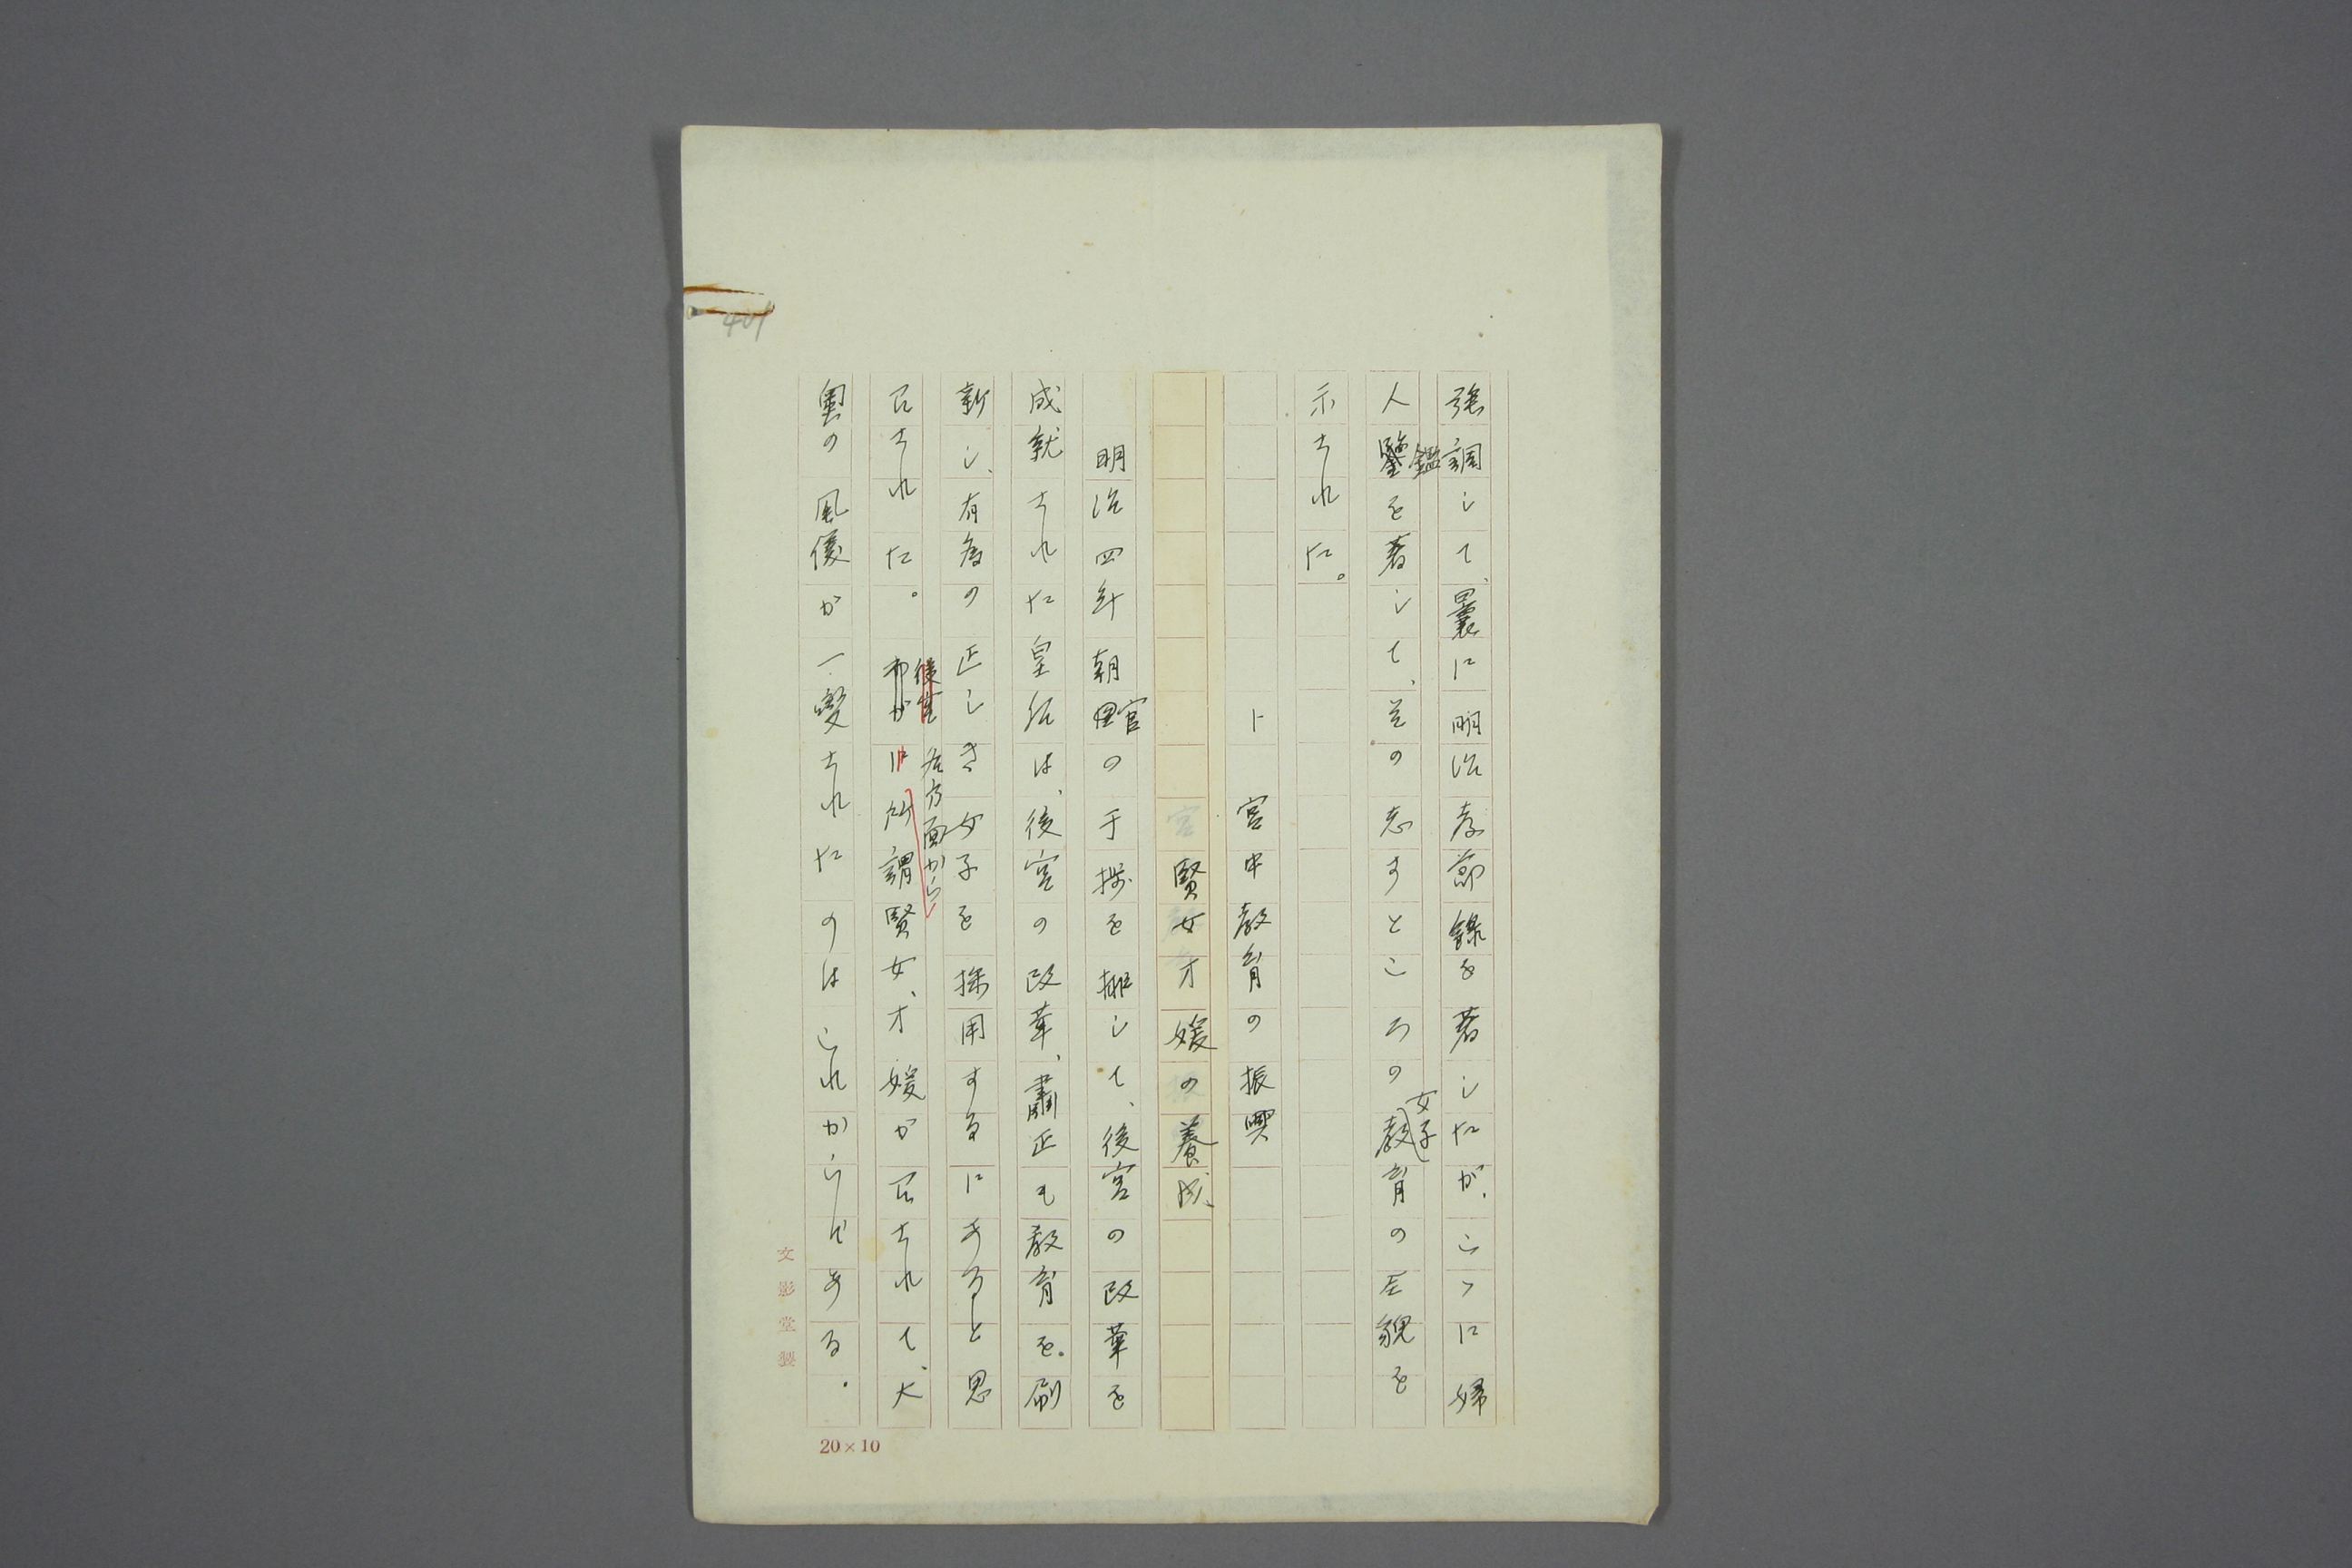 強調して、曩に明治孝節録を著したが、こゝに婦
人鑒を著して、其の志すところの教育の全貌を
鑑
女子
示された。
ト 宮中教育の振興
賢女才媛の養成
明治四年朝官の手操を排して、後宮の改革を
成就された皇后は、後宮の改革、肅正も教育を刷
新し、有為の正しき女子を採用するにあると思
召された。所謂賢女、才媛が召されて、大
各方面から
奥の風儀が一變されたのはこれからである。
401
文影堂製
20×10